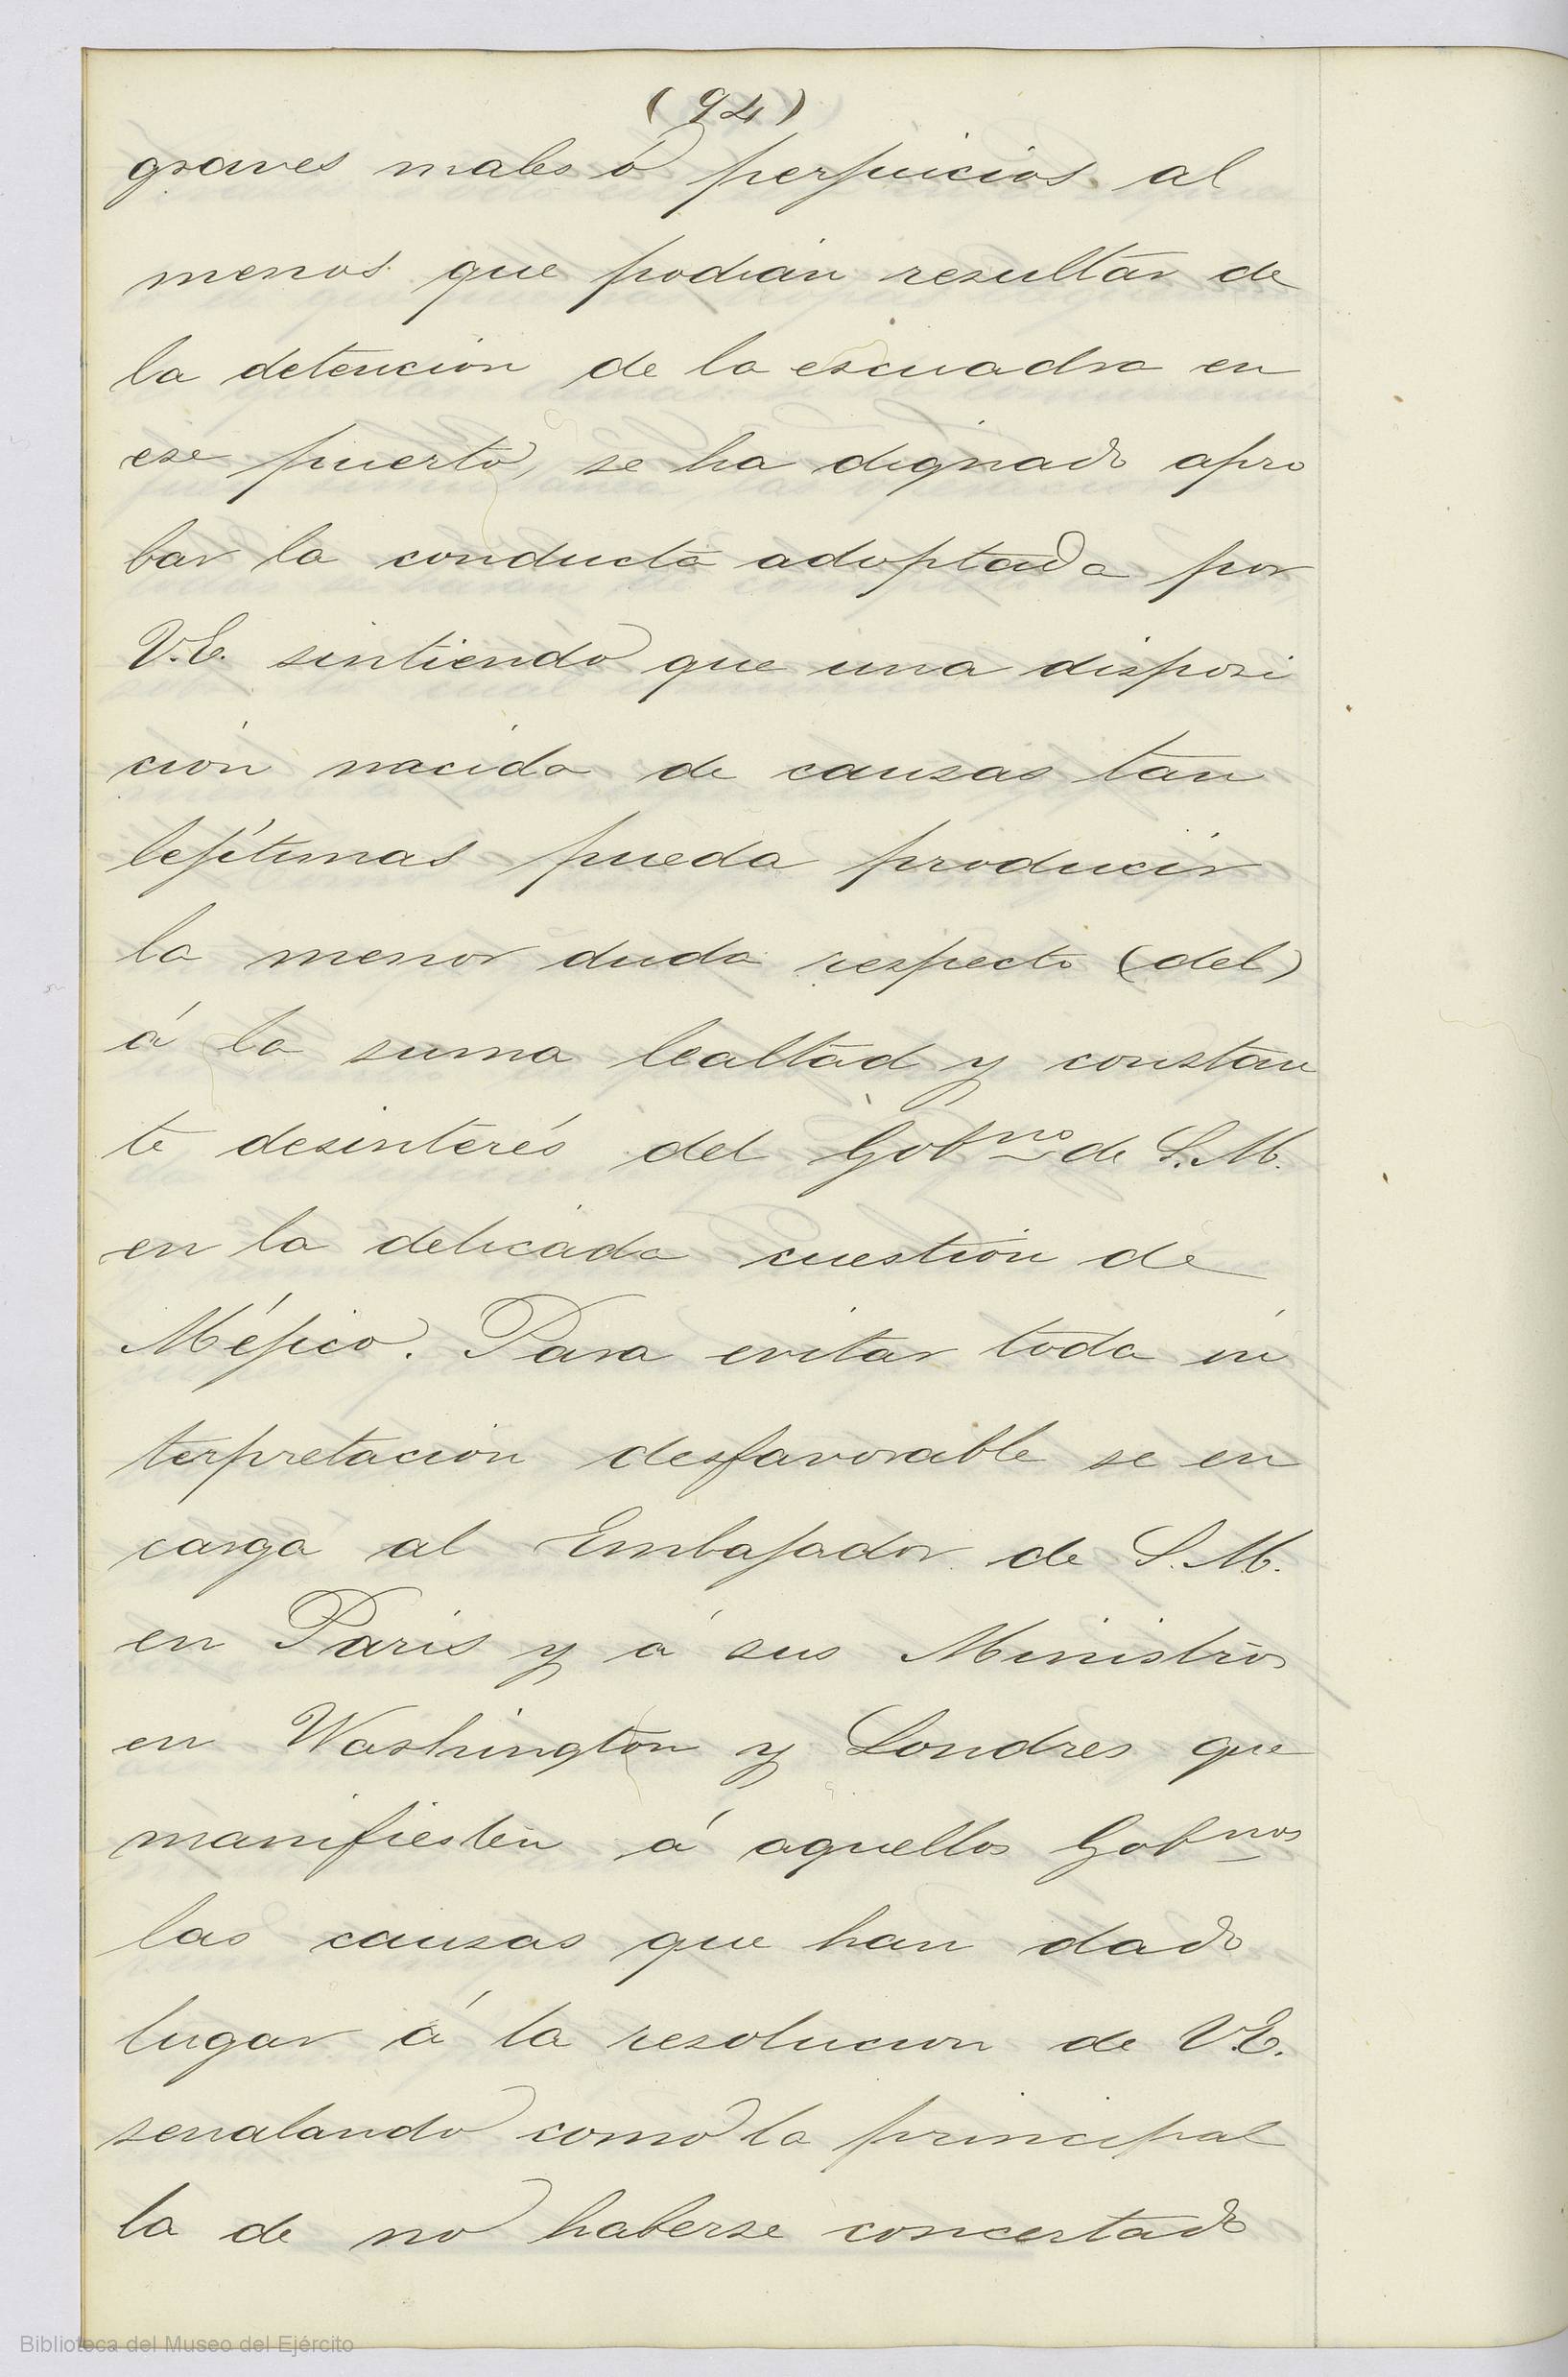 (94)
graves males ó perjuicios al
menos que podian resultar de
la detencion de la escuadra en
ese puerto, se ha dignado apro
bar la conducta adoptada por
V.E. sintiendo que una disposi
ción nacida de causas tan
lejítimas pueda producir
la menor duda respecto (del)
á la suma lealtad y constan
te desinterés del Gobno de S.M.
en la delicada cuestion de
Méjico. Para evitar toda in
terpretacion desfavorable se en
carga al Embajador de S.M.
en Paris y á sus Ministros
en Washington y Londres que
manifiesten á aquellos Gobnos
las causas que han dado
lugar á la resolucion de V.E.
senalando como la principal
la de no haberse concertado
Biblioteca del Museo del Ejército